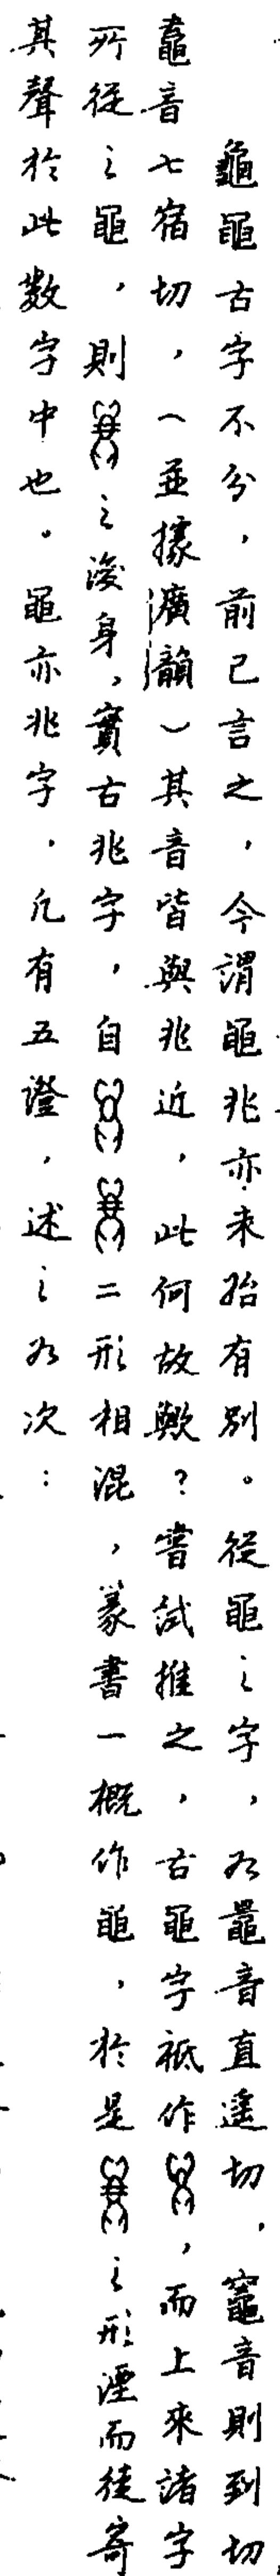 龜黽古字不分，前已言之，今謂黽兆亦未始有別。從黽之字，如鼂音直遙切，竈音則到切
鼀音七宿切，（並據廣韻）其音皆與兆近，此何故歟？嘗試推之，古黽字祇作，而上來諸字
所從之黽，則之後身，實古兆字，自二形相混，篆書一概作黽，於是之形湮而徒寄
其聲於此數字中也。黽亦兆字，凡有五證，述之如次：